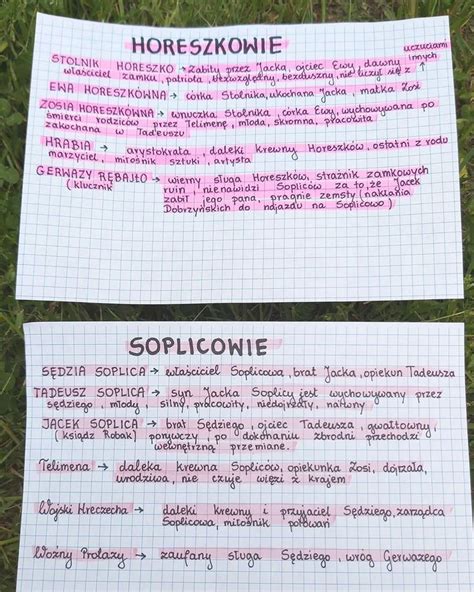 HORESZKOWIE
STOLNIK HORESZKO → Zabity przez Jacka, ojciec Ewy, dawny
właściciel zamku, patriota, bezwzględny, bezduszny, nie liczył się z
uczuciami
innych
EWA HORESZKÓWNA → córka Stolnika, ukochana Jacka, matka Zosi
ZOSIA HORESZKÓWNA → wnuczka Stolnika, córka Ewy, wychowywana po
śmierci rodziców przez Telimenę, młoda, skromna, pracowita
zakochana w Tadeuszu
HRABIA → arystokrata, daleki krewny Horeszków, ostatni z rodu
marzyciel, miłośnik sztuki, artysta
GERWAZY RĘBAJŁO → wierny sługa Horeszków, strażnik zamkowych
(klucznik) ruin, nienawidzi Sopliców za to, że Jacek
zabił jego pana, pragnie zemsty (nakłania
Dobrzyńskich do najazdu na Soplicowo)
SOPLICOWIE
SĘDZIA SOPLICA → właściciel Soplicowa, brat Jacka, opiekun Tadeusza
TADEUSZ SOPLICA → syn Jacka Soplicy, jest wychowywany przez
sędziego, młody, silny, pracowity, niedojrzały, naiwny
JACEK SOPLICA → brat Sędziego, ojciec Tadeusza, gwałtowny,
(ksiądz Robak) porywczy, po dokonaniu zbrodni przechodzi
wewnętrzną przemianę.
Telimena → daleka krewna Sopliców, opiekunka Zosi, dojrzała,
urodziwa, nie czuje więzi z krajem
Wojski Hreczecha → daleki krewny i przyjaciel Sędziego, zarządca
Soplicowa, miłośnik polowań
Woźny Protazy → zaufany sługa Sędziego, wróg Gerwazego